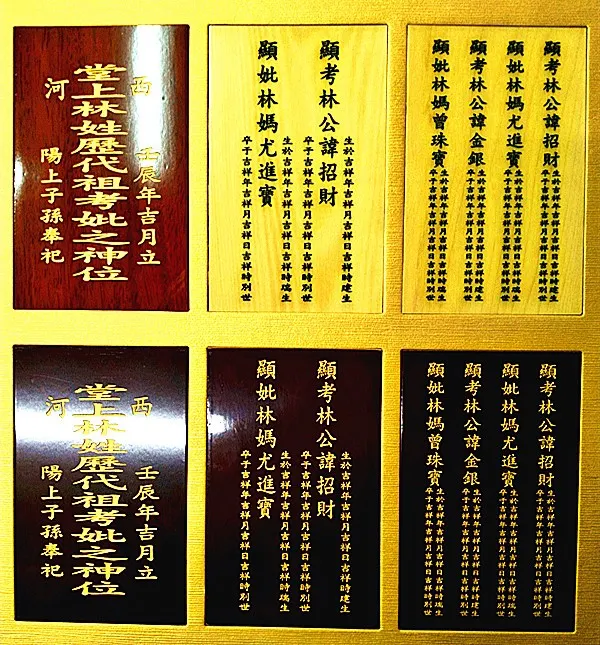 西河
壬辰年吉月立
堂上林姓歷代祖考妣之神位
陽上子孫奉祀
顯考林公諱招財
生於吉祥年吉祥月吉祥日吉祥時建生
卒于吉祥年吉祥月吉祥日吉祥時別世
顯妣林媽尤進寶
生於吉祥年吉祥月吉祥日吉祥時瑞生
卒于吉祥年吉祥月吉祥日吉祥時別世
顯考林公諱招財
生於吉祥年吉祥月吉祥日吉祥時建生
卒于吉祥年吉祥月吉祥日吉祥時別世
顯妣林媽尤進寶
生於吉祥年吉祥月吉祥日吉祥時瑞生
卒于吉祥年吉祥月吉祥日吉祥時別世
顯考林公諱金銀
生於吉祥年吉祥月吉祥日吉祥時建生
卒于吉祥年吉祥月吉祥日吉祥時別世
顯妣林媽曾珠寶
生於吉祥年吉祥月吉祥日吉祥時瑞生
卒于吉祥年吉祥月吉祥日吉祥時別世
西河
壬辰年吉月立
堂上林姓歷代祖考妣之神位
陽上子孫奉祀
顯考林公諱招財
生於吉祥年吉祥月吉祥日吉祥時建生
卒于吉祥年吉祥月吉祥日吉祥時別世
顯妣林媽尤進寶
生於吉祥年吉祥月吉祥日吉祥時瑞生
卒于吉祥年吉祥月吉祥日吉祥時別世
顯考林公諱招財
生於吉祥年吉祥月吉祥日吉祥時建生
卒于吉祥年吉祥月吉祥日吉祥時別世
顯妣林媽尤進寶
生於吉祥年吉祥月吉祥日吉祥時瑞生
卒于吉祥年吉祥月吉祥日吉祥時別世
顯考林公諱金銀
生於吉祥年吉祥月吉祥日吉祥時建生
卒于吉祥年吉祥月吉祥日吉祥時別世
顯妣林媽曾珠寶
生於吉祥年吉祥月吉祥日吉祥時瑞生
卒于吉祥年吉祥月吉祥日吉祥時別世